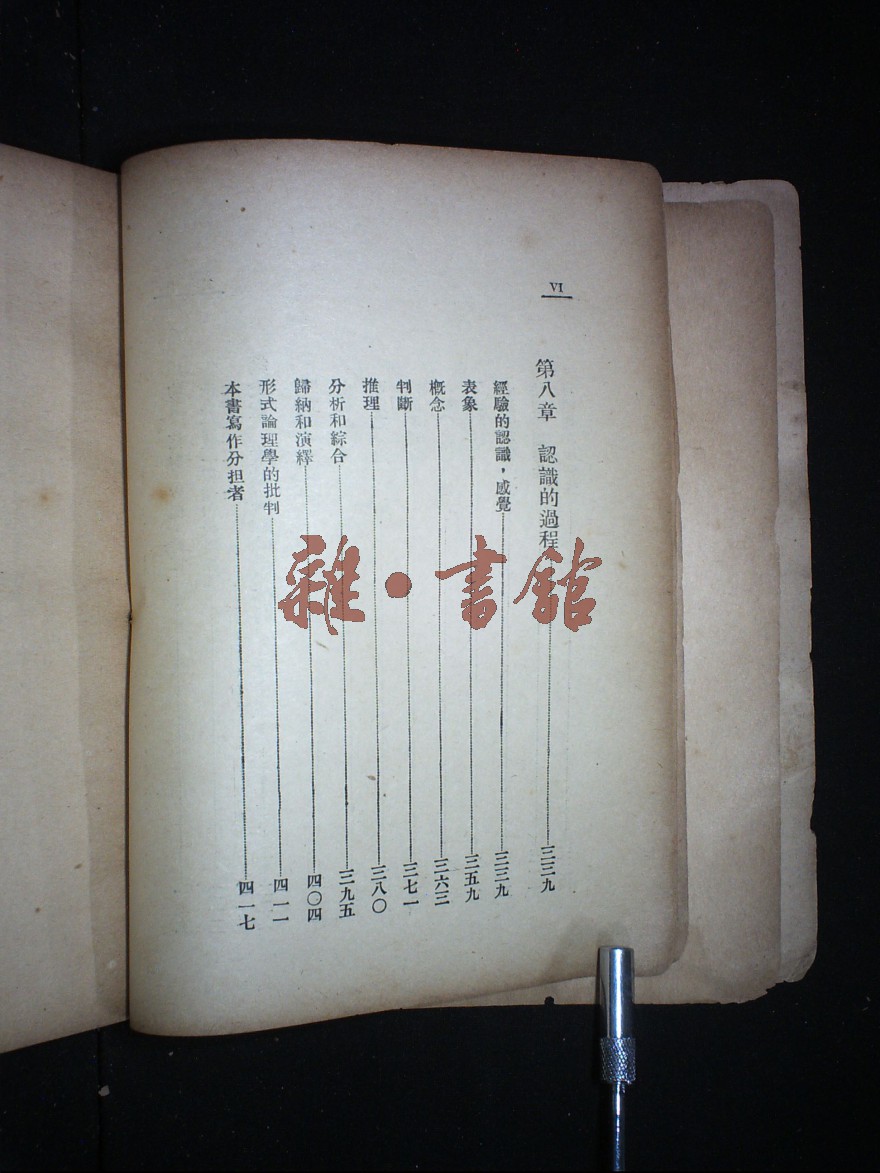 VI
第八章　認識的過程……三三九
經驗的認識，感覺……三三九
表象……三五九
概念……三六三
判斷……三七一
推理……三八〇
分析和綜合……三九五
歸納和演繹……四〇四
形式論理學的批判……四一一
本書寫作分担者……四一七
雜·書舘